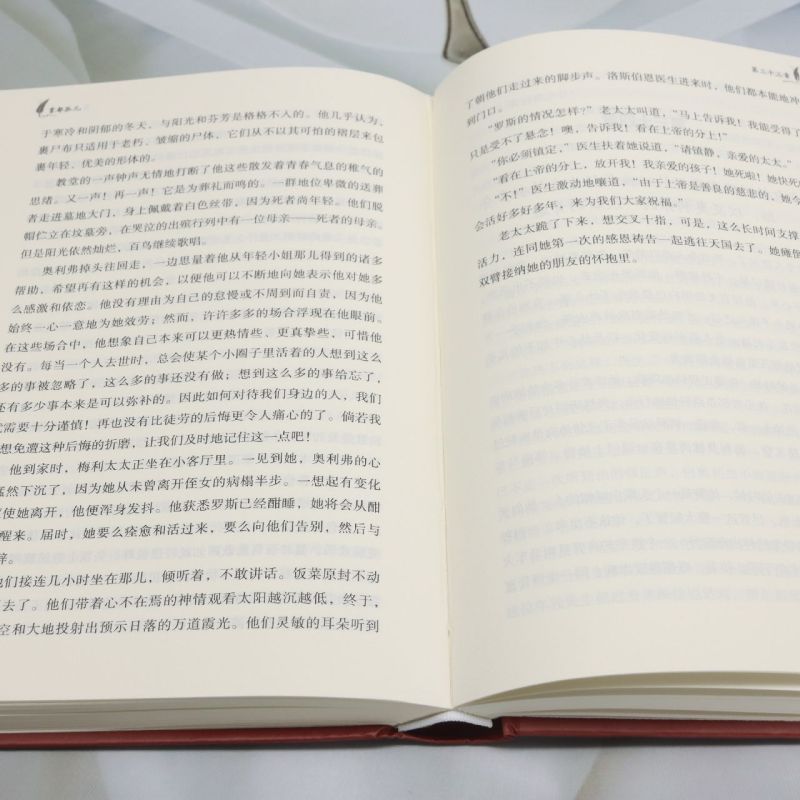 雾都孤儿
于寒冷和阴郁的冬天，与阳光和芬芳是格格不入的。他几乎认为，
裹尸布只适用于老朽、皱缩的尸体，它们从不以其可怕的褶层来包
裹年轻、优美的形体的。
教堂的一声钟声无情地打断了他这些散发着青春气息的稚气的
思绪。又一声！再一声！它是为葬礼而鸣的。一群地位卑微的送葬
者走进墓地大门，身上佩戴着白色丝带，因为死者尚年轻。他们脱
帽伫立在坟墓旁，在哭泣的出殡行列中有一位母亲——死者的母亲。
但是阳光依然灿烂，百鸟继续歌唱。
奥利弗掉头往回走，一边思量着他从年轻小姐那儿得到的诸多
帮助，希望再有这样的机会，以便他可以不断地向她表示他对她多
么感激和依恋。他没有理由为自己的怠慢或不周到而自责，因为他
始终一心一意地为她效劳；然而，许许多多的场合浮现在他眼前，
在这些场合中，他想象自己本来可以更热情些、更真挚些，可惜他
没有。每当一个人去世时，总会使某个小圈子里活着的人想到这么
多的事被忽略了，这么多的事还没有做；想到这么多的事给忘了，
还有多少事本来是可以弥补的。因此如何对待我们身边的人，我们
需要十分谨慎！再也没有比徒劳的后悔更令人痛心的了。倘若我
想免遭这种后悔的折磨，让我们及时地记住这一点吧！
他到家时，梅利太太正坐在小客厅里。一见到她，奥利弗的心
猛然下沉了，因为她从未曾离开侄女的病榻半步。一想起有变化
使她离开，他便浑身发抖。他获悉罗斯已经酣睡，她将会从酣
醒来。届时，她要么痊愈和活过来，要么向他们告别，然后与
辞。
他们接连几小时坐在那儿，倾听着，不敢讲话。饭菜原封不动
去了。他们带着心不在焉的神情观看太阳越沉越低，终于，
空和大地投射出预示日落的万道霞光。他们灵敏的耳朵听到
第三十三章
了朝他们走过来的脚步声。洛斯伯恩医生进来时，他们都本能地冲
到门口。
“罗斯的情况怎样？”老太太叫道，“马上告诉我！我能受得了
只是受不了悬念！噢，告诉我！看在上帝的分上！”
“你必须镇定，”医生扶着她说道，“请镇静，亲爱的太太。”
“看在上帝的分上，放开我！我亲爱的孩子！她死啦！她快死
“不！”医生激动地嚷道，“由于上帝是善良的慈悲的，她今
会活好多好多年，来为我们大家祝福。”
老太太跪了下来，想交叉十指，可是，这么长时间支撑
活力，连同她第一次的感恩祷告一起逃往天国去了。她倾倒
双臂接纳她的朋友的怀抱里。